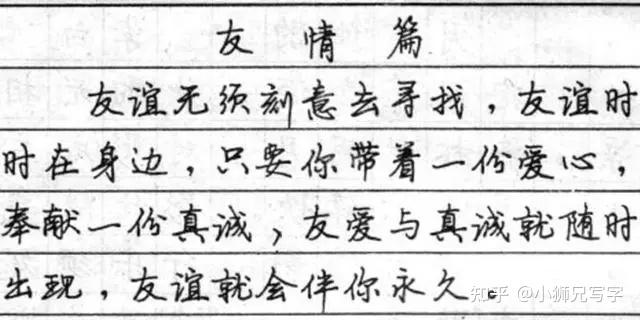 友情篇
友谊无须刻意去寻找，友谊时
时在身边，只要你带着一份爱心，
奉献一份真诚，友爱与真诚就随时
出现，友谊就会伴你永久。
知乎 @小狮兄写字